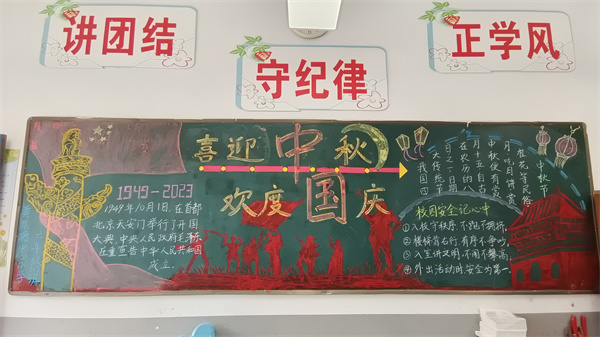 讲团结
守纪律
正学风
喜迎中秋
欢度国庆
1949-2023
1949年10月1日,在首都
北京天安门举行了开国
大典,中央人民政府毛泽东
庄重宣告中华人民共和国
成立.
中秋节
我国四
大传统节
日之一日期
在农历的八
月十五自古
中秋便有赏
月,吃月饼,赏
桂花等民俗
校园安全记心中
①入校守秩序,不跑不拥挤;
②楼梯靠右行,有序不争吵;
③入室讲文明,不闹不攀高;
④外出活动时,安全为第一.